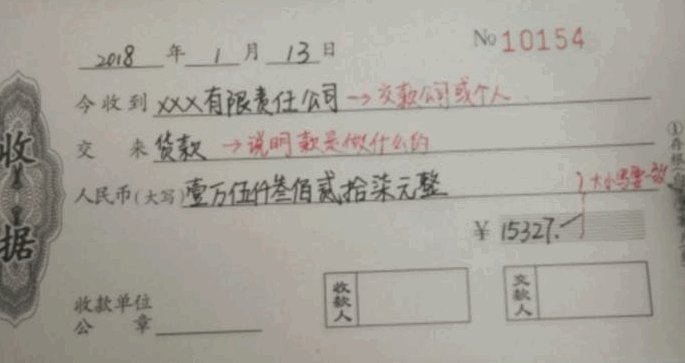 收据
2018 年 1 月 13 日 No 10154
今收到 XXX有限责任公司 →交款公司或个人
交 来 货款 →说明款是做什么的
人民币(大写) 壹万伍仟叁佰贰拾柒元整
大小写要一致
¥ 15327.
收款单位
公 章
收款人
交款人